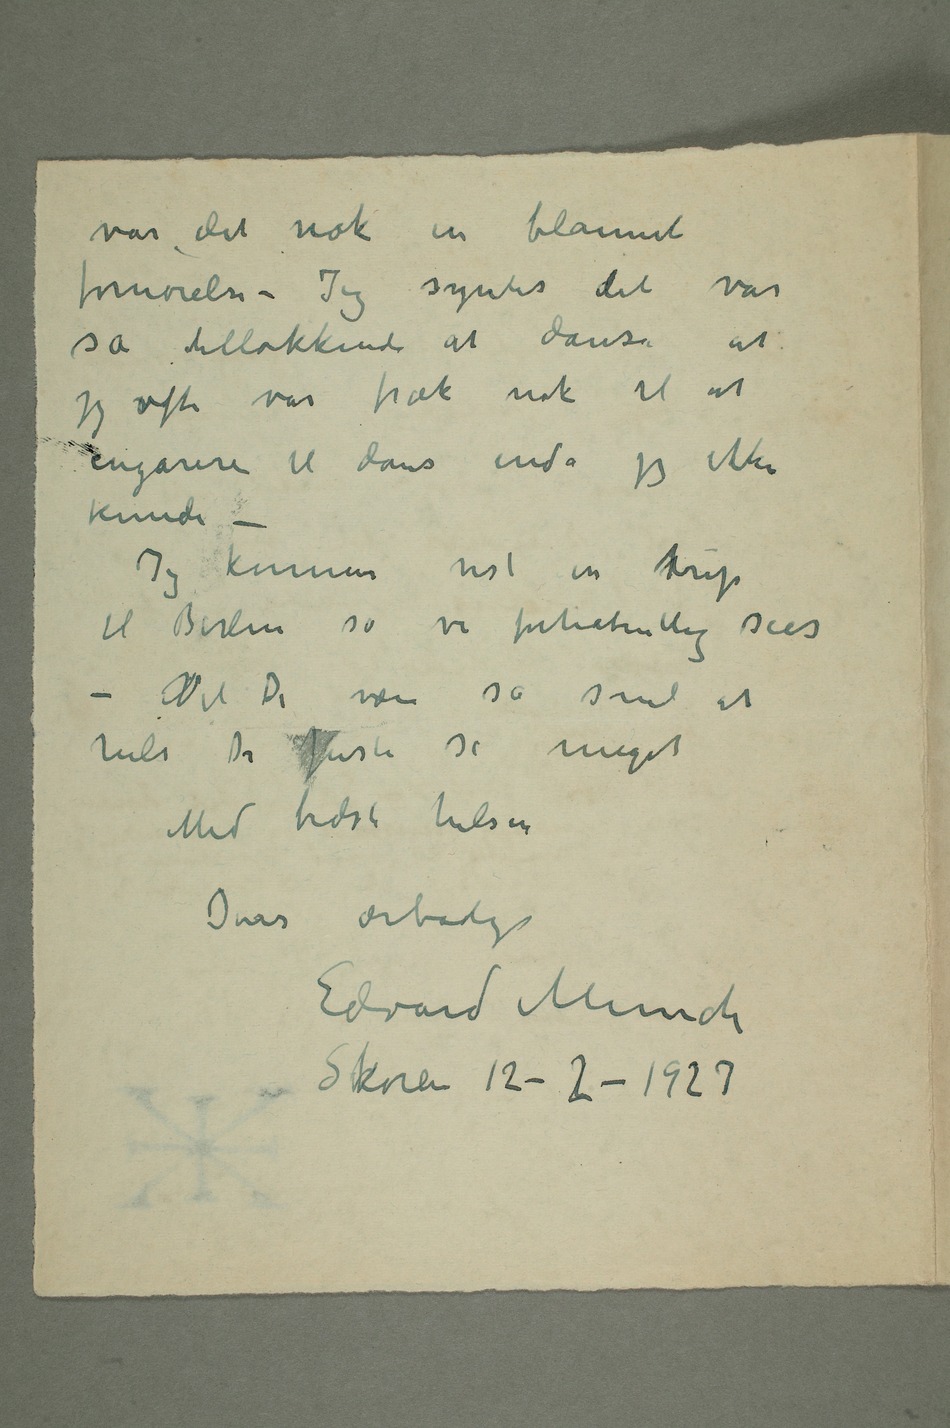 var det nok en blannet
fornøielse – Jeg syntes det var
så tillokkende at danse at
jeg ofte var fræk nok til at
engasere til dans enda jeg ikke
kunde –
Jeg kommer vist en trip
til Berlin så vi forhåbentlig sees
– Vil De være så snil at
hilse De fleste så meget
Med bedste hilsen
Deres ærbødige
Edvard Munch
Skøien 12 – 2 – 1927